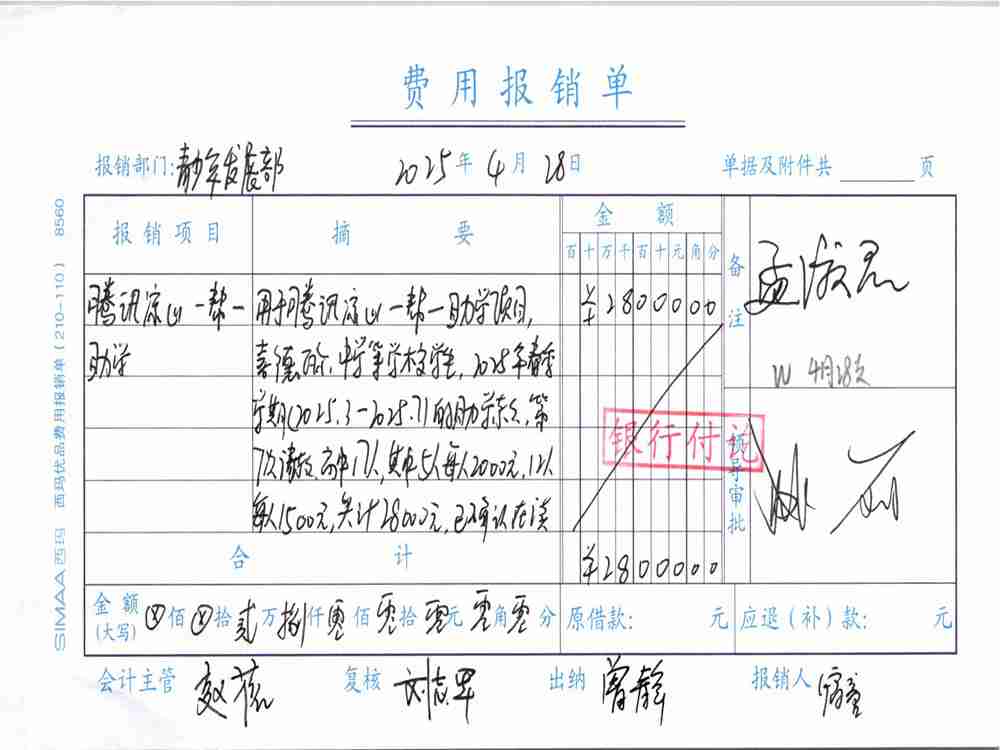 费用报销单
报销部门:青少年发展部 2025年4月28日 单据及附件共 页
报销项目 摘要 金额 备注
百十万千百十元角分
腾讯凉山一帮一 用于腾讯凉山一帮一助学项目, ¥2800000
助学 中学等学校学生, 2025年春季
学期(2025.3-2025.7)的助学款, 第
7次请款, 高中17人, 其中5人每人2000元, 12人
每人1500元, 共计28000元, 已确认在读
银行付讫
W 4月28日
领导审批
合计 ¥2800000
金额(大写) ⊗佰⊗拾贰万捌仟零佰零拾零元零角零分 原借款: 元 应退(补)款: 元
会计主管 复核 刘志军 出纳 曾静 报销人
SIMAA西玛 西玛优品费用报销单(210-110) 8560